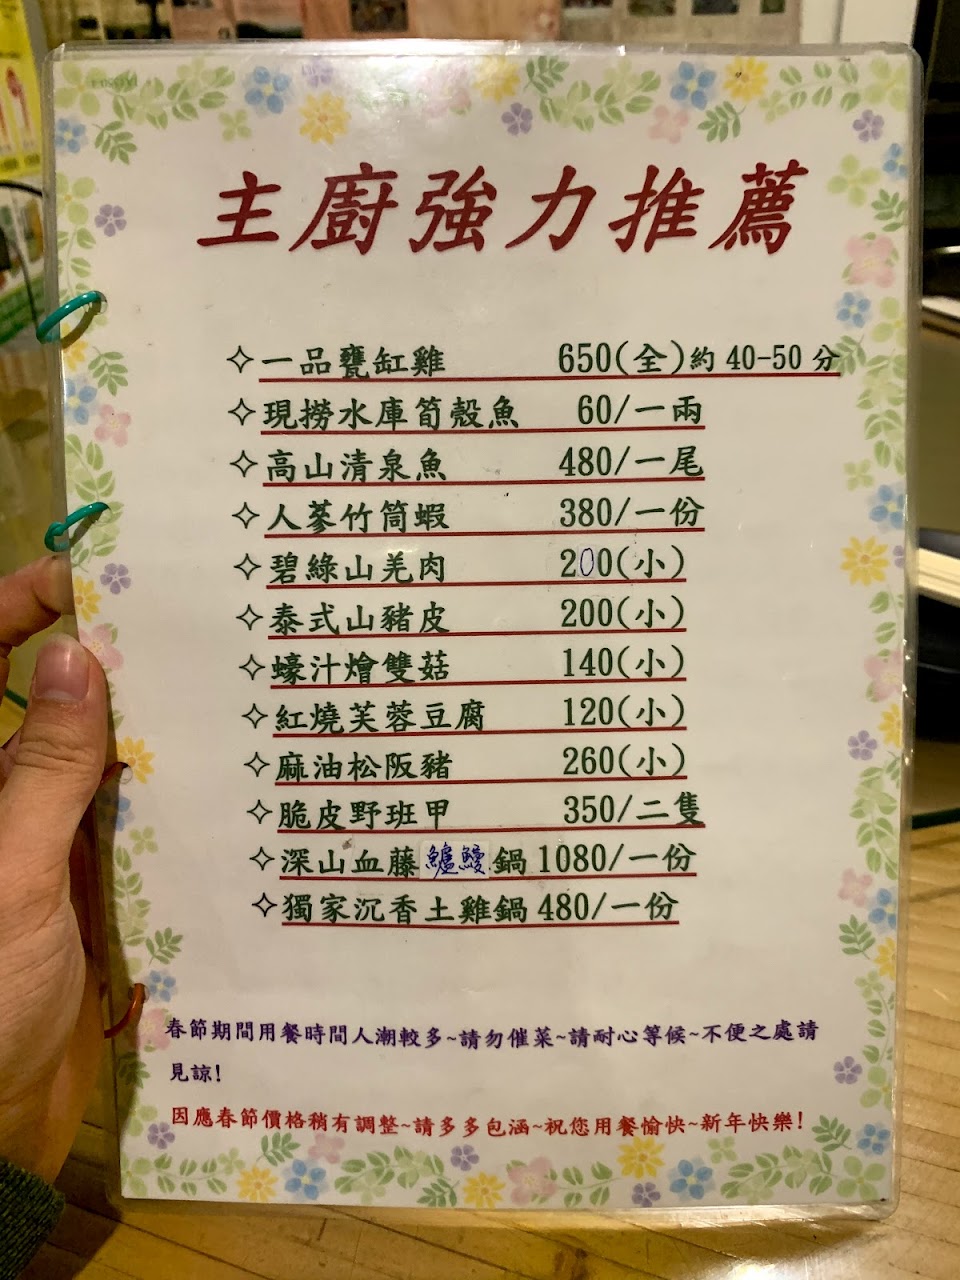 主廚強力推薦
✧一品甕缸雞 650(全)約 40-50 分
✧現撈水庫筍殼魚 60/一兩
✧高山清泉魚 480/一尾
✧人蔘竹筒蝦 380/一份
✧碧綠山羌肉 200(小)
✧泰式山豬皮 200(小)
✧蠔汁燴雙菇 140(小)
✧紅燒芙蓉豆腐 120(小)
✧麻油松阪豬 260(小)
✧脆皮野班甲 350/二隻
✧深山血藤鱸鰻鍋 1080/一份
✧獨家沉香土雞鍋 480/一份
春節期間用餐時間人潮較多~請勿催菜~請耐心等候~不便之處請
見諒!
因應春節價格稍有調整~請多多包涵~祝您用餐愉快~新年快樂!